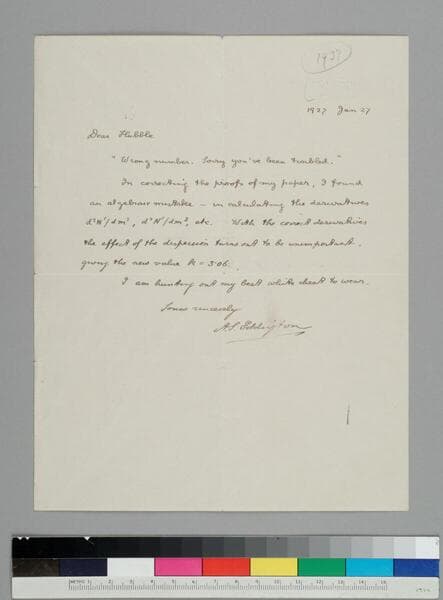 1937
1937 Jan 27
Dear Hubble
"Wrong number. Sorry you've been troubled."
In correcting the proofs of my paper, I found
an algebraic mistake – in calculating the derivatives
d²N'/dm², d³N'/dm³, etc. With the correct derivatives
the effect of the dispersion turns out to be unimportant,
giving the new value k = 3·06.
I am hunting out my best white sheet to wear.
Yours sincerely
A.S. Eddington
METRIC 1 2 3 4 5 6 7 8 9 10 11 12 13 14 15 16